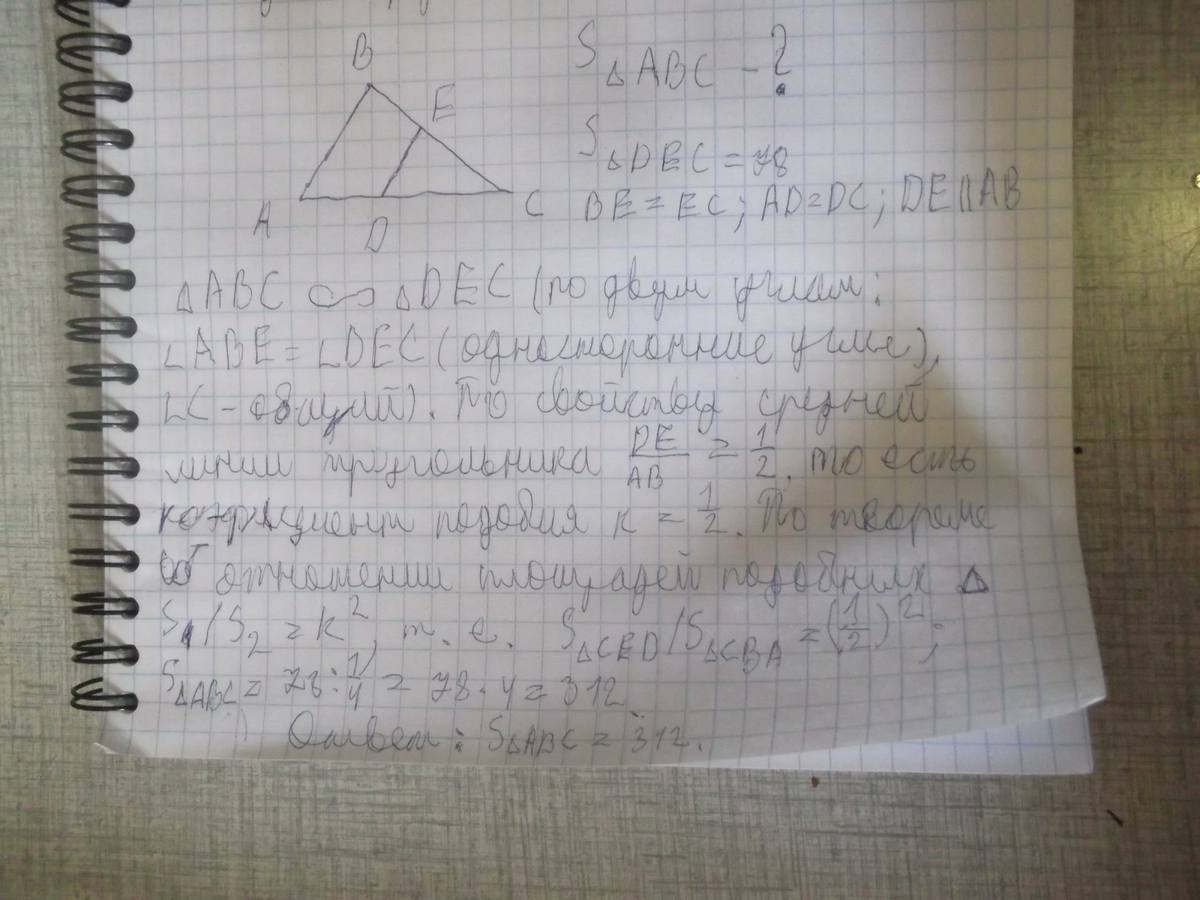 B
E
A
D
C
S△ABC - ?
S△DEC = 78
BE = EC; AD = DC; DE || AB
△ABC ∽ △DEC (по двум углам:
∠ABE = ∠DEC (односторонние углы),
∠C - общий). По свойству средней
линии треугольника DE/AB = 1/2, то есть
коэффициент подобия k = 1/2. По теореме
об отношении площадей подобных △
S1/S2 = k², т. е. S△CED/S△CBA = (1/2)²;
S△ABC = 78 : 1/4 = 78 · 4 = 312
Ответ: S△ABC = 312.